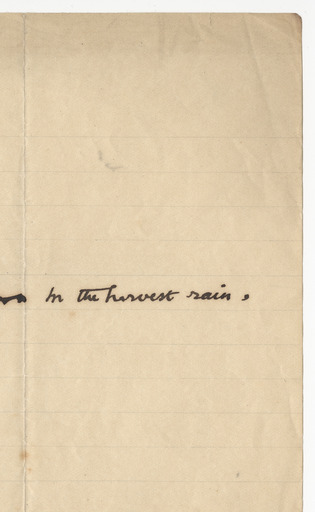 In the harvest rain,